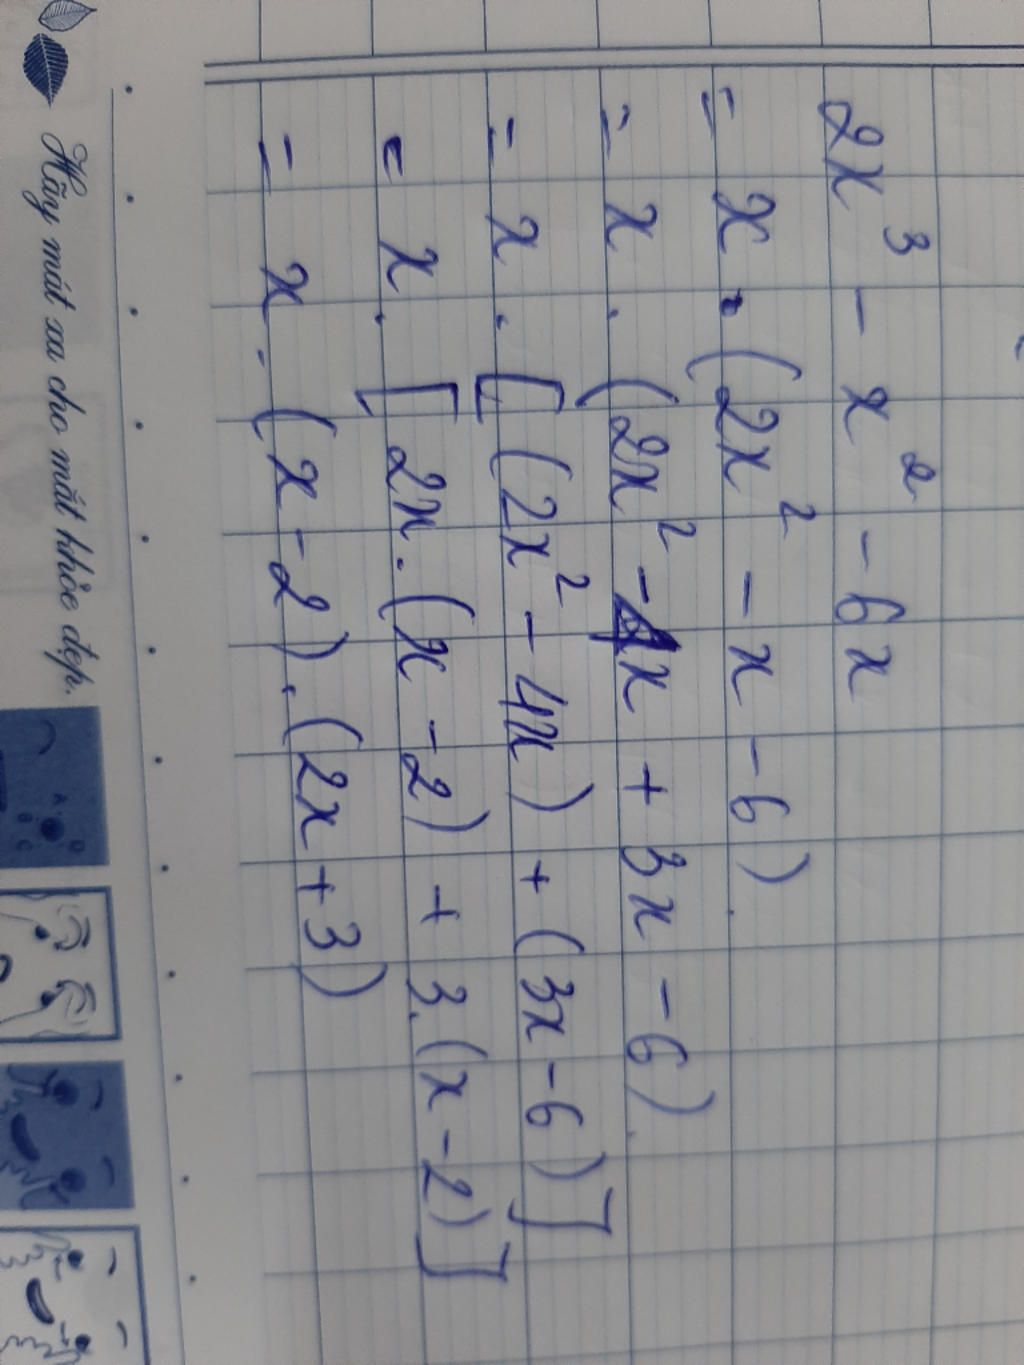 2x³ - x² - 6x
= x . (2x² - x - 6)
= x . (2x² - 4x + 3x - 6)
= x . [(2x² - 4x) + (3x - 6)]
= x . [2x . (x - 2) + 3 . (x - 2)]
= x . (x - 2) . (2x + 3)
Hãy mát xa cho mắt khỏe đẹp.